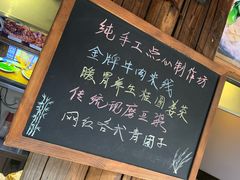 纯手工点心制作坊
金牌牛肉米线
暖胃养生桂圆姜茶
传统现磨豆浆
网红各式青团子